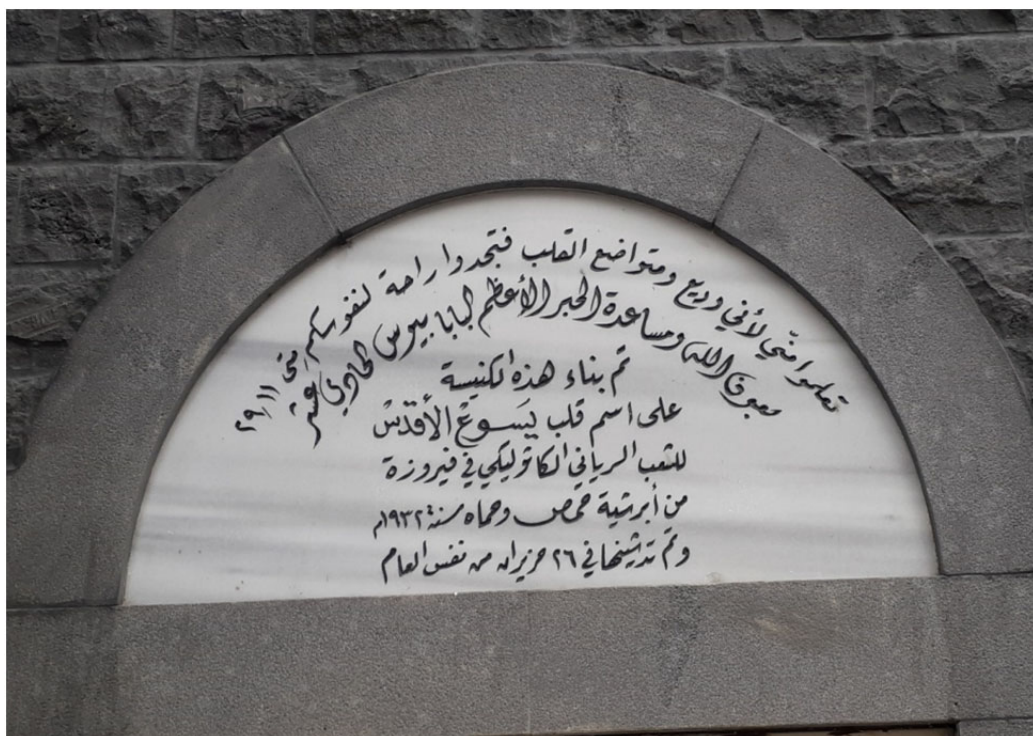 تعلموا منّي لأني وديع ومتواضع القلب فتجدوا راحة لنفوسكم متى ١١/٢٩
بعون الله ومساعدة الحبر الأعظم البابا بيوس الحادي عشر
تمّ بناء هذه الكنيسة
على اسم قلب يَسوعْ الأقدَسْ
للشعب السرياني الكاثوليكي في فيروزة
من أبرشية حمص وحماه سنة ١٩٣٢م
وتمّ تدشينها في ٢٦ حزيران من نفس العام